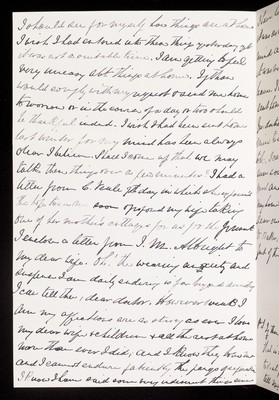 I should see for myself how things are at home
I wish I had entered into these things yesterday but
it was not a suitable time. I am getting to feel
very uneasy abt things at home. If those
would comply with my request & send me home
to-morrow or in the course of a day or two I should
be thankful indeed. I wish I had been sent home
last winter for my mind has been always
clear I believe. Please come up that we may
talk these things over a few minutes. I had a
letter from C the day in which she expressed
the hope soon of my wife taking
one of her mother's cottages for us for the present
I enclose a letter from J. M. Albright to
my dear wife. Oh! the wearing anxiety and
suspense I am daily enduring is far beyond what
I can tell thee, dear doctor. However weak I
am my affections are as strong as ever I love
my dear wife & children & all the rest at home
more than ever I did, and I know they love me
and I cannot endure patiently the pangs of separation
I know I have said some very indiscreet things since